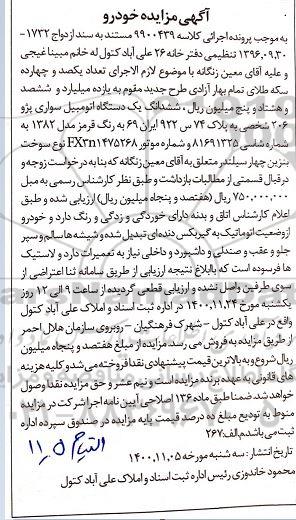 آگهی مزایده خودرو
به موجب پرونده اجرائی کلاسه ۹۹۰۰۴۳۹ مستند به سند ازدواج ۱۷۳۲-
۱۳۹۶,۰۹,۳۰ تنظیمی دفتر خانه ۲۶ علی آباد کتول له خانم مبینا غیجی
و علیه آقای معین زنگانه با موضوع لازم الاجرای تعداد یکصد و چهارده
سکه طلای تمام بهار آزادی طرح جدید مقوم به یازده میلیارد و ششصد
و هشتاد و پنج میلیون ریال، ششدانگ یک دستگاه اتومبیل سواری پژو
۲۰۶ شخصی به پلاک ۷۴ س ۹۲۲ ایران ۶۹ به رنگ قرمز مدل ۱۳۸۲ به
شماره شاسی ۸۱۶۹۱۳۲۵ و شماره موتور FX۳n۱۴۷۵۲۶۸ نوع سوخت
بنزین چهار سیلندر متعلق به آقای معین زنگانه که بنا به درخواست زوجه و
در قبال قسمتی از مطالبات بازداشت و طبق نظر کارشناس رسمی به مبلغ
۷۵۰,۰۰۰,۰۰۰ ریال (هفتصد و پنجاه میلیون ریال) ارزیابی شده و طبق
اعلام کارشناس اتاق و بدنه دارای خوردگی و زدگی و رنگ دارد و خودرو
از وضعیت اتوماتیک به گیربکس دنده ای تبدیل شده و شیشه ها سالم و سپر
جلو و عقب و صندلی و داشبورد و داخلی نیاز به تعمیرات دارد و لاستیک
ها فرسوده است که با ابلاغ نتیجه ارزیابی از طریق سامانه ثنا اعتراضی از
سوی طرفین واصل نشده و ارزیابی قطعی گردیده از ساعت ۹ الی ۱۲ روز
یکشنبه مورخ ۱۴۰۰,۱۱,۲۴ در اداره ثبت اسناد و املاک علی آباد کتول
واقع در علی آباد کتول - شهرک فرهنگیان - روبروی سازمان هلال احمر
از طریق مزایده به فروش می رسد. مزایده از مبلغ هفتصد و پنجاه میلیون
ریال شروع و به بالاترین قیمت پیشنهادی نقدا فروخته می شد و کلیه هزینه
های قانونی به عهده برنده مزایده است و نیم عشر و حق مزایده نقدا وصول
خواهد شد. ضمنا طبق ماده ۱۳۶ اصلاحی آیین نامه اجرا شرکت در مزایده
منوط به تودیع مبلغ ده درصد قیمت پایه مزایده در صندوق سپرده اداره
ثبت می باشد.م الف:۲۶۷
تاریخ انتشار: سه شنبه مورخه ۱۴۰۰,۱۱,۰۵
محمود خاندوزی رئیس اداره ثبت اسناد و املاک علی آباد کتول